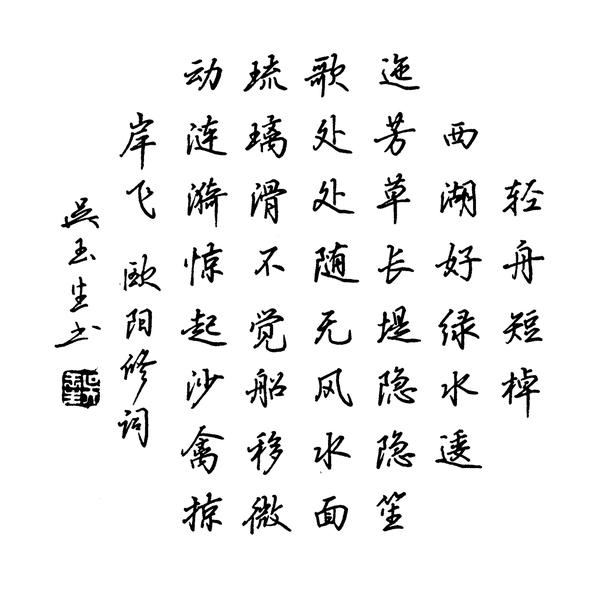 轻舟短棹
西湖好绿水逶
迤芳草长堤隐隐笙
歌处处随无风水面
琉璃滑不觉船移微
动涟漪惊起沙禽掠
岸飞 欧阳修词
吴玉生书